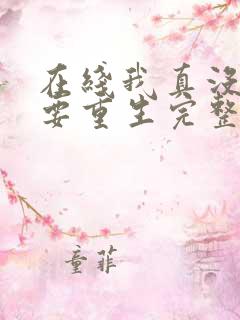 在綫我真没
要重生完整
童菲